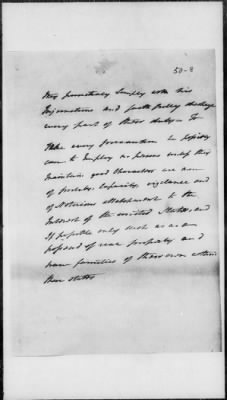 50-8
they punctualy comply with his
Injunctions and faithfully discharge
every part of their duty — to
Take every precaution he possibly
can to Employ no persons unless they
maintain good Characters are men
of probity, Capacity, vigilance and
of Notorious attachment to the
Interest of the united States, and
If possible only such as are
possessed of real property and
have families of their own within
these states